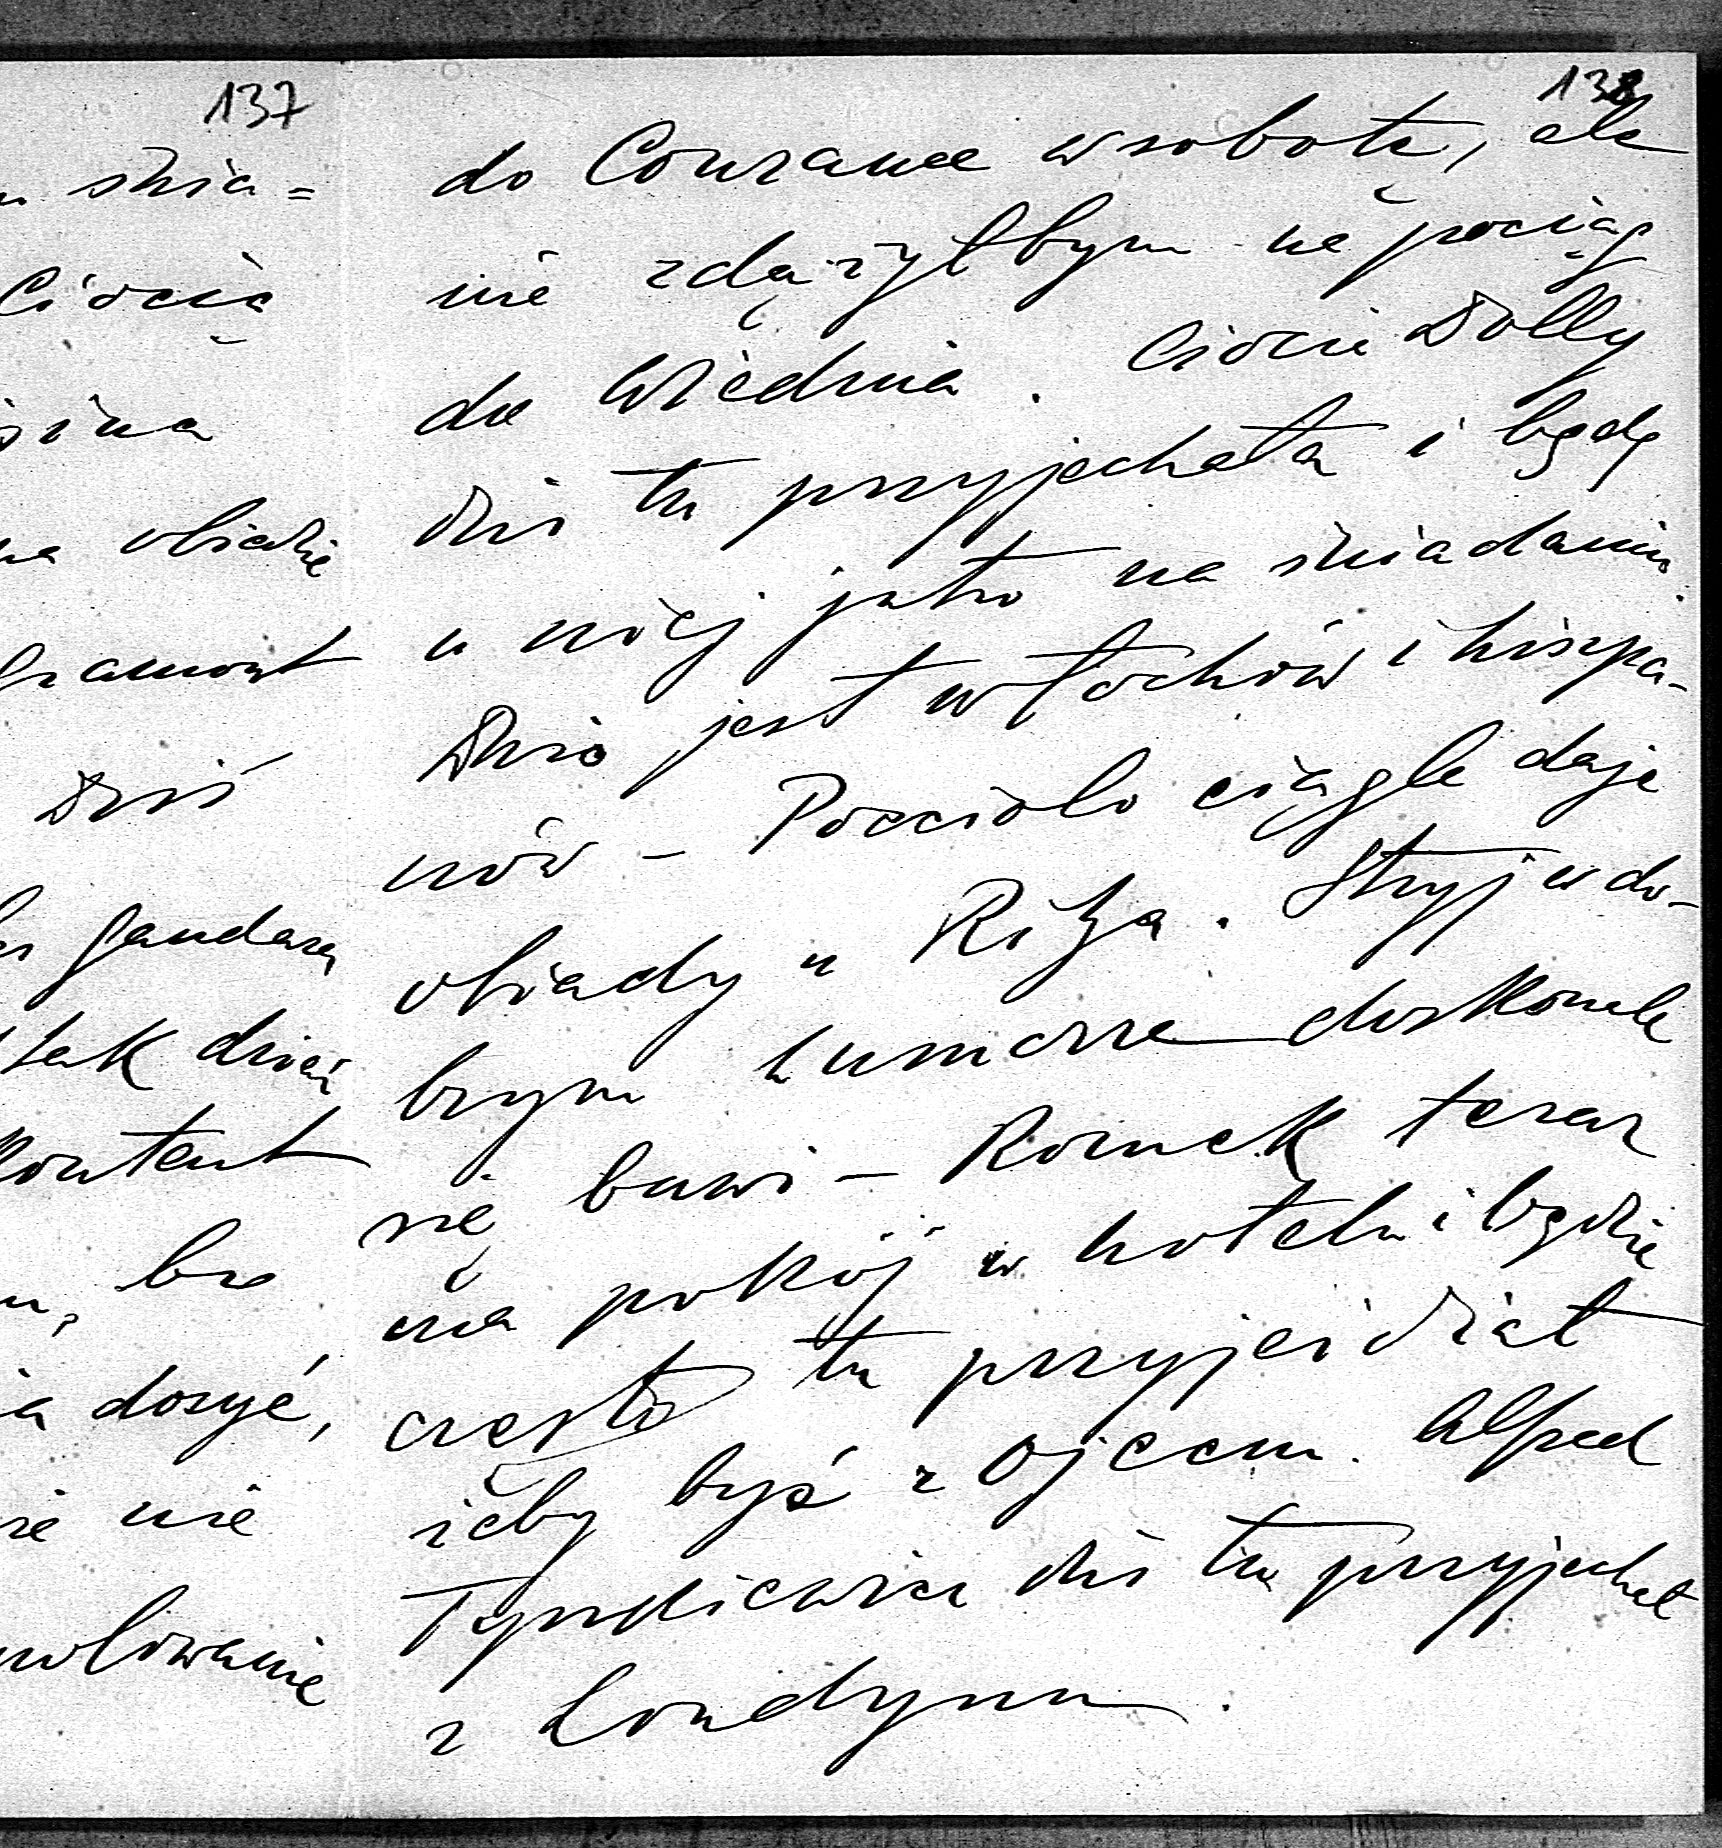 137
śnia=
Ciocię
na obiedzie
Gramont
Dziś
Gandarą
tak dzieci
kontent
bo
dosyć,
nie
138
do Courance w sobotę, ale
nie zdążyłbym na pociąg
do Wiednia. Ciocia Dolly
dziś tu przyjechała i będę
u niej jutro na śniadaniu.
Dużo jest włochów i hiszpa-
nów – Pocciolo ciągle daje
obiady u Ritza. Stryj w do-
brym humorze doskonale
się bawi – Romek teraz
ma pokój w hotelu i będzie
często tu przyjeżdżał
żeby być z Ojcem. Alfred
Tyszkiewicz dziś tu przyjechał
z Londynu.